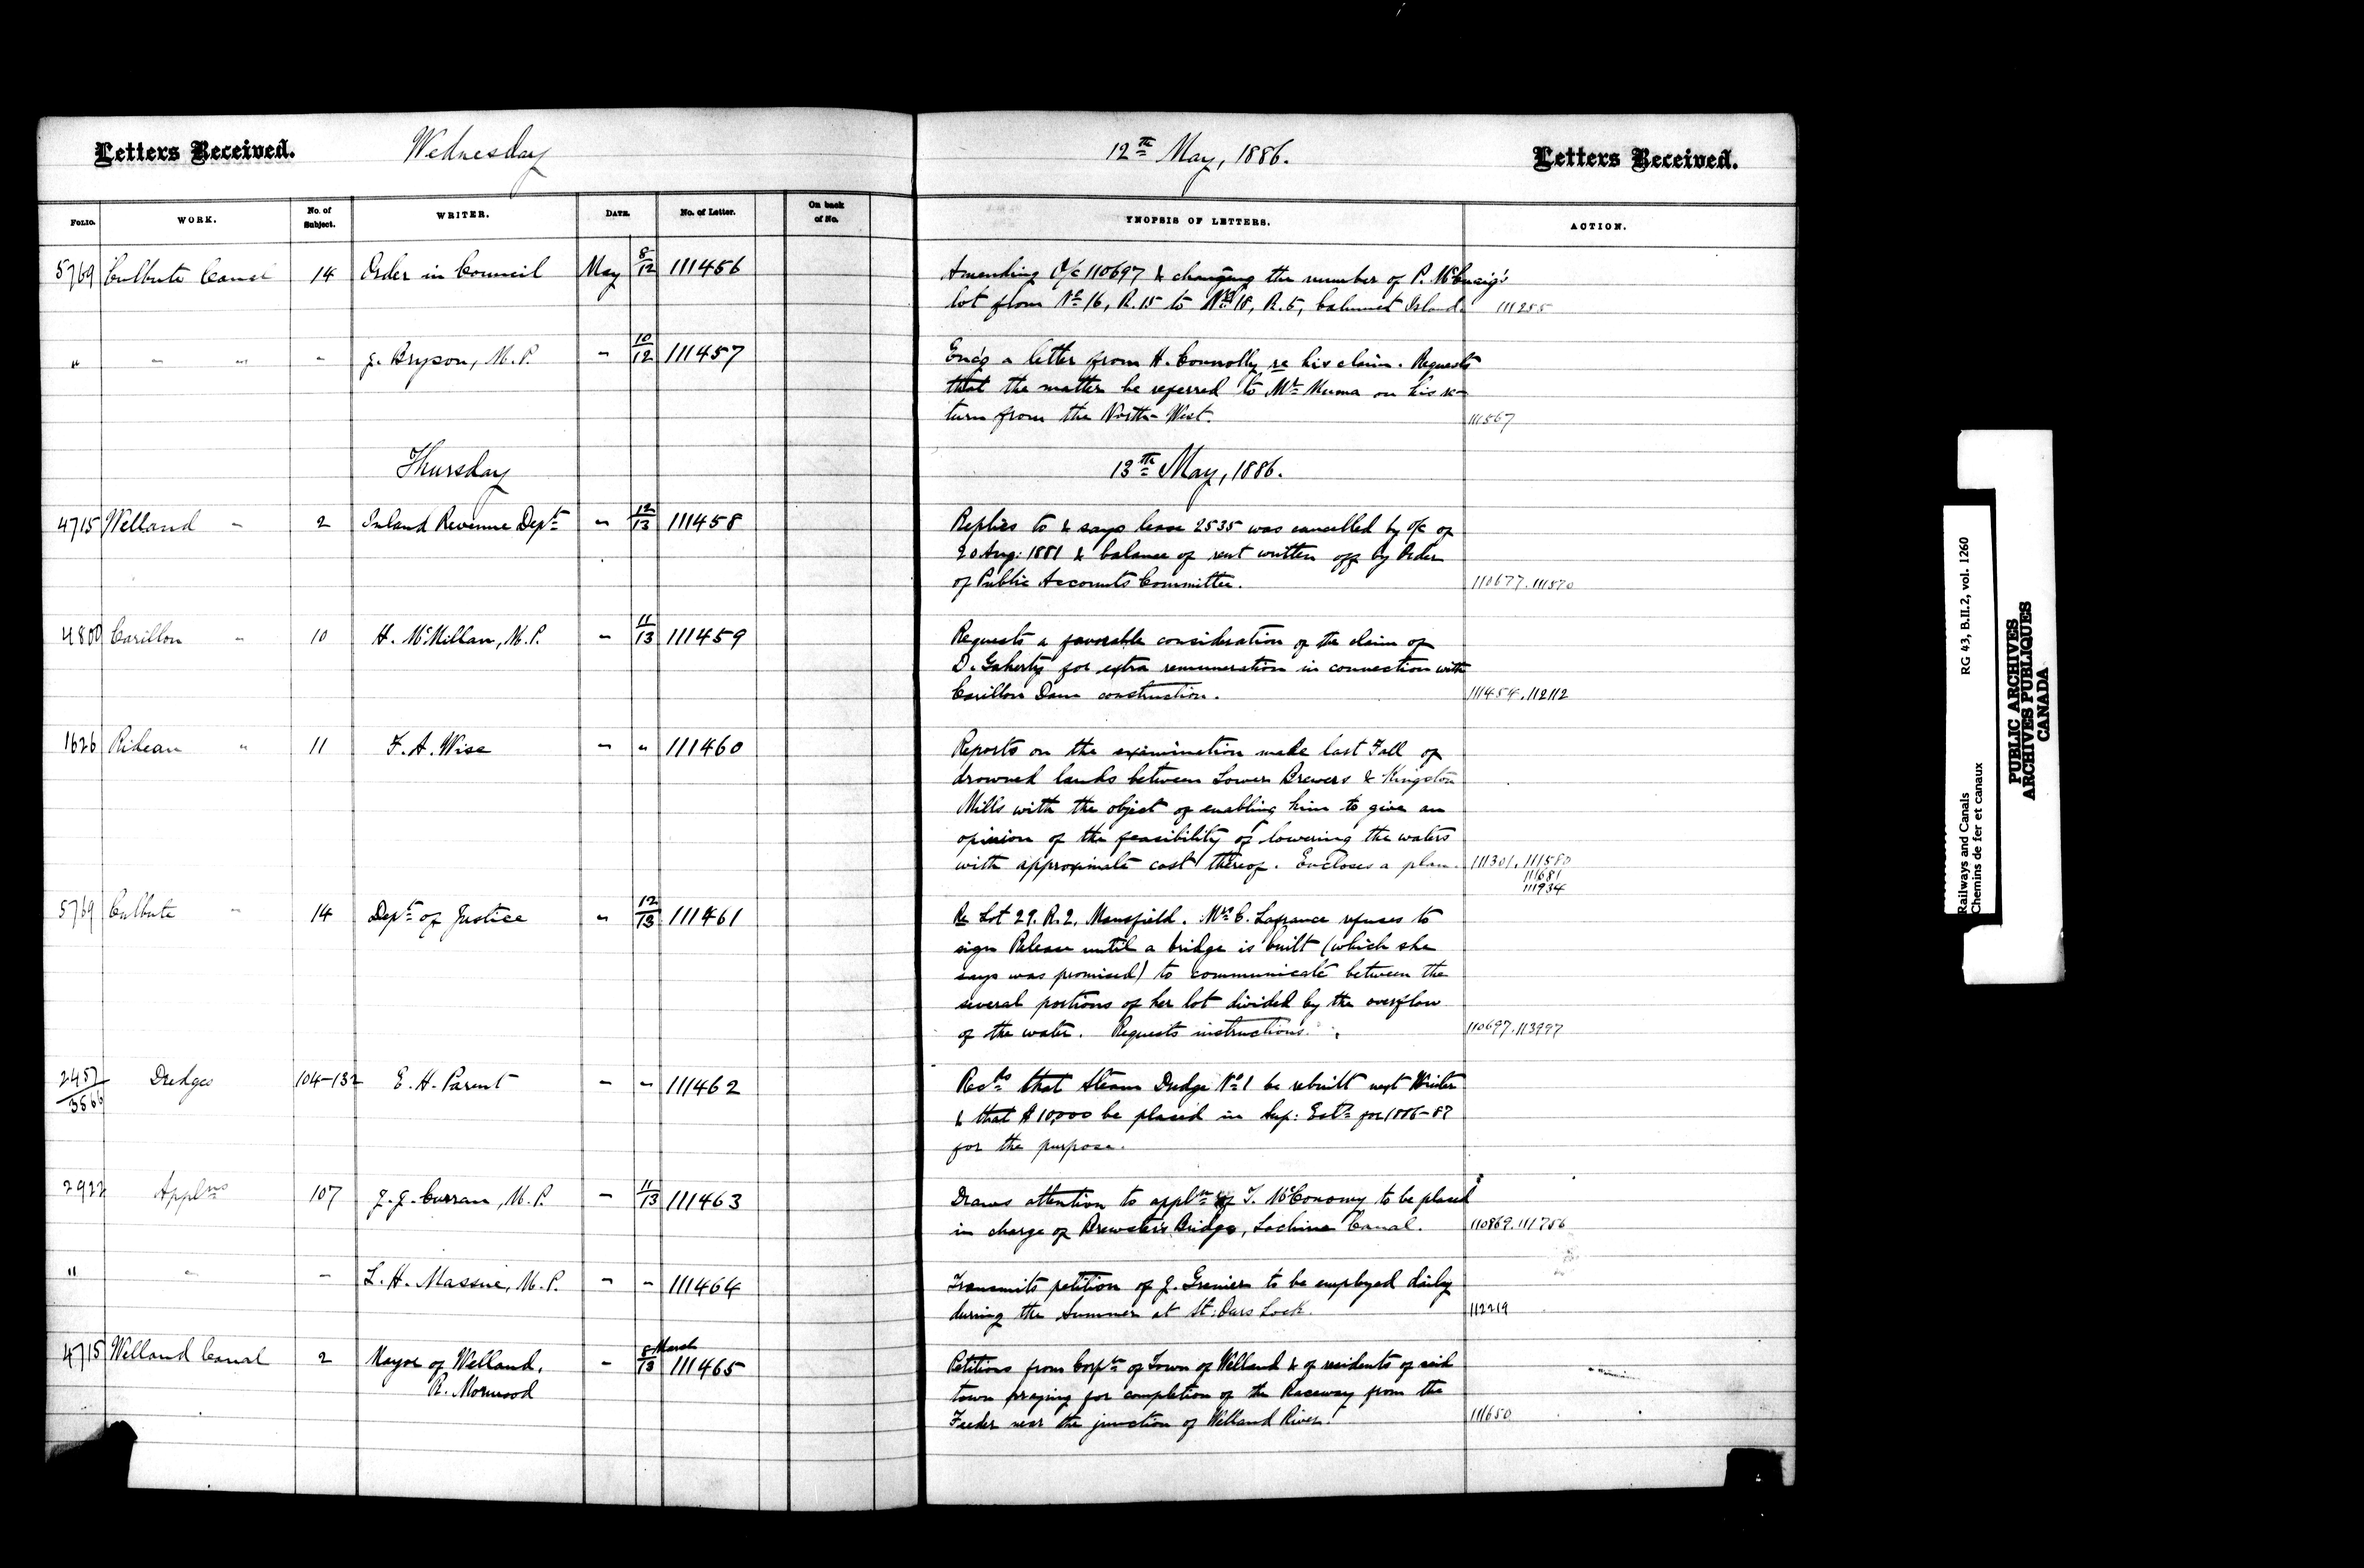 Letters Received. Wednesday 12th May, 1886. Letters Received.
FOLIO. WORK. No. of Subject. WRITER. DATE. No. of Letter. On back of No. YNOPSIS OF LETTERS. ACTION.
5769 Culbute Canal 14 Order in Council May 8/12 111456 Amending O/C 110697 & changing the number of P. McCuaig's
lot from No 16, R. 15 to No 18, R. 5, Calumet Island. 111255
" " " " J. Bryson, M.P. " 10/12 111457 Enc'g a letter from H. Connolly re his claim. Requests
that the matter be referred to Mr Muma on his re-
turn from the North-West. 111567
Thursday 13th May, 1886.
4715 Welland " 2 Inland Revenue Dept " 12/13 111458 Replies to & says lease 2535 was cancelled by O/C of
20 Aug: 1881 & balance of rent written off by Order
of Public Accounts Committee. 110677. 111570
4800 Carillon " 10 H. McMillan, M.P. " 11/13 111459 Requests a favorable consideration of the claim of
D. Gaherty for extra remuneration in connection with
Carillon Dam construction. 111454. 112112
1626 Rideau " 11 F. A. Wise " " 111460 Reports on the examination made last Fall of
drowned lands between Lower Brewers & Kingston
Mills with the object of enabling him to give an
opinion of the feasibility of lowering the waters
with approximate cost thereof. Encloses a plan. 111301. 111580
111681
111934
5769 Culbute " 14 Dept of Justice " 12/13 111461 Re Lot 29. R. 2, Mansfield. Mrs C. Lafrance refuses to
sign Release until a bridge is built (which she
says was promised) to communicate between the
several portions of her lot divided by the overflow
of the water. Requests instructions. 110697. 113997
2457/3566 Dredges 104-132 E. H. Parent " " 111462 Recds that Steam Dredge No 1 be rebuilt next Winter
& that $10,000 be placed in Sup: Ests for 1886-87
for the purpose.
2922 Applns 107 J. J. Curran, M.P. " 11/13 111463 Draws attention to appln of T. McConomy to be placed
in charge of Brewster's Bridge, Lachine Canal. 110869. 111756
" " " L. H. Massue, M.P. " " 111464 Transmits petition of J. Grenier to be employed daily
during the Summer at St: Ours Lock. 112219
4715 Welland Canal 2 Mayor of Welland, " 8 March/13 111465 Petitions from Corptn of Town of Welland & of residents of said
R. Morwood town praying for completion of the Raceway from the
Feeder near the junction of Welland River. 111650
Railways and Canals RG 43, B.II.2, vol. 1260
Chemins de fer et canaux
PUBLIC ARCHIVES
ARCHIVES PUBLIQUES
CANADA